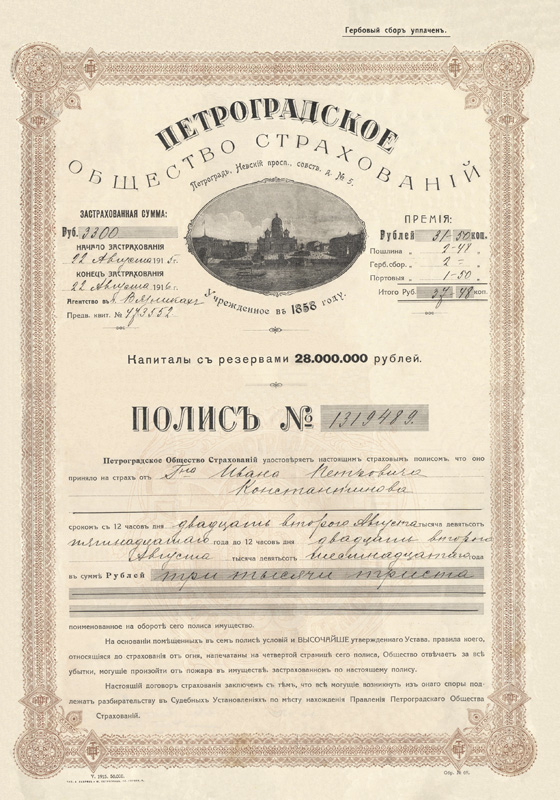 Гербовый сборъ уплаченъ.
ПЕТРОГРАДСКОЕ
ОБЩЕСТВО СТРАХОВАНІЙ
Петроградъ, Невскій просп., собств. д. № 5.
ЗАСТРАХОВАННАЯ СУММА:
Руб. 3300
НАЧАЛО ЗАСТРАХОВАНІЯ
22 Августа 1915 г.
КОНЕЦЪ ЗАСТРАХОВАНІЯ
22 Августа 1916 г.
Агентство въ
Предв. квит. № 473552
ПРЕМІЯ:
Рублей 31-50 коп.
Пошлина „ 2-48 „
Герб.сбор. „ 2 - „
Портовыя „ 1-50 „
Итого Руб. 37-48 коп.
Учрежденное въ 1858 году.
Капиталы съ резервами 28.000.000 рублей.
ПОЛИСЪ № 1319489.
Петроградское Общество Страхованій удостовѣряетъ настоящимъ страховымъ полисомъ, что оно
приняло на страхъ отъ Гна Ивана Петровича
Константинова
срокомъ съ 12 часовъ дня двадцать второго Августа тысяча девятьсотъ
пятнадцатаго года до 12 часовъ дня двадцать второго
Августа тысяча девятьсотъ шестнадцатаго года
въ суммѣ Рублей три тысячи триста
поименованное на оборотѣ сего полиса имущество.
На основаніи помѣщенныхъ въ семъ полисѣ условій и ВЫСОЧАЙШЕ утвержденнаго Устава, правила коего,
относящіяся до страхованія отъ огня, напечатаны на четвертой страницѣ сего полиса, Общество отвѣчаетъ за всѣ
убытки, могущіе произойти отъ пожара въ имуществѣ, застрахованномъ по настоящему полису.
Настоящій договоръ страхованія заключенъ съ тѣмъ, что всѣ могущіе возникнуть изъ онаго споры под-
лежатъ разбирательству въ Судебныхъ Установленіяхъ по мѣсту нахожденія Правленія Петроградскаго Общества
Страхованій.
V. 1915. 50,000.
Обр. №